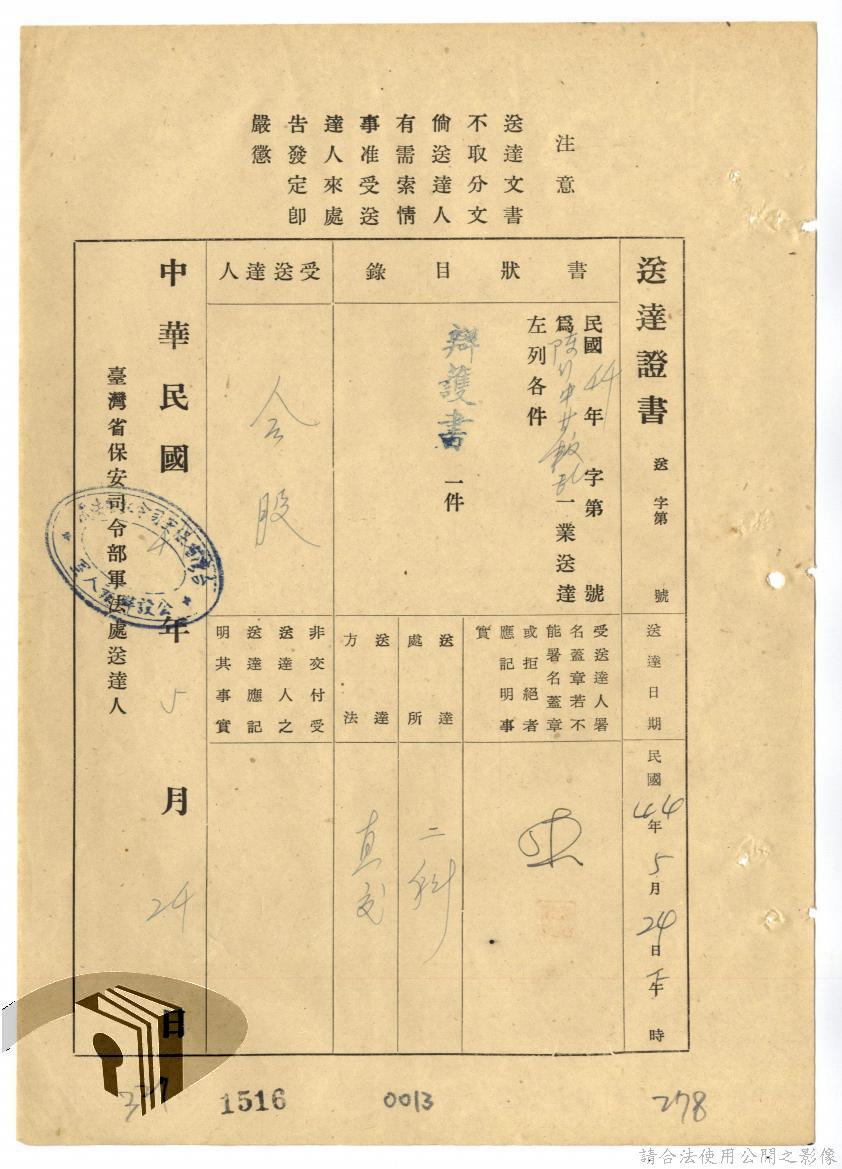 注意
送達文書
不取分文
倘送達人
有需索情
事准受送
達人來處
告發定卽
嚴懲
送達證書
送 字第 號
書狀目錄
民國44年 字第 號
爲陳行中廿叛亂一業送達
左列各件
辯護書 一件
受送達人
合股
送達日期
民國44年5月24日下午 時
受送達人署
名蓋章若不
能署名蓋章
或拒絕者
應記明事
實
送達處所
二科
送達方法
直交
非交付受
送達人之
送達應記
明其事實
中華民國4年5月24日
臺灣省保安司令部軍法處送達人
1516
0013
278
請合法使用公開之影像